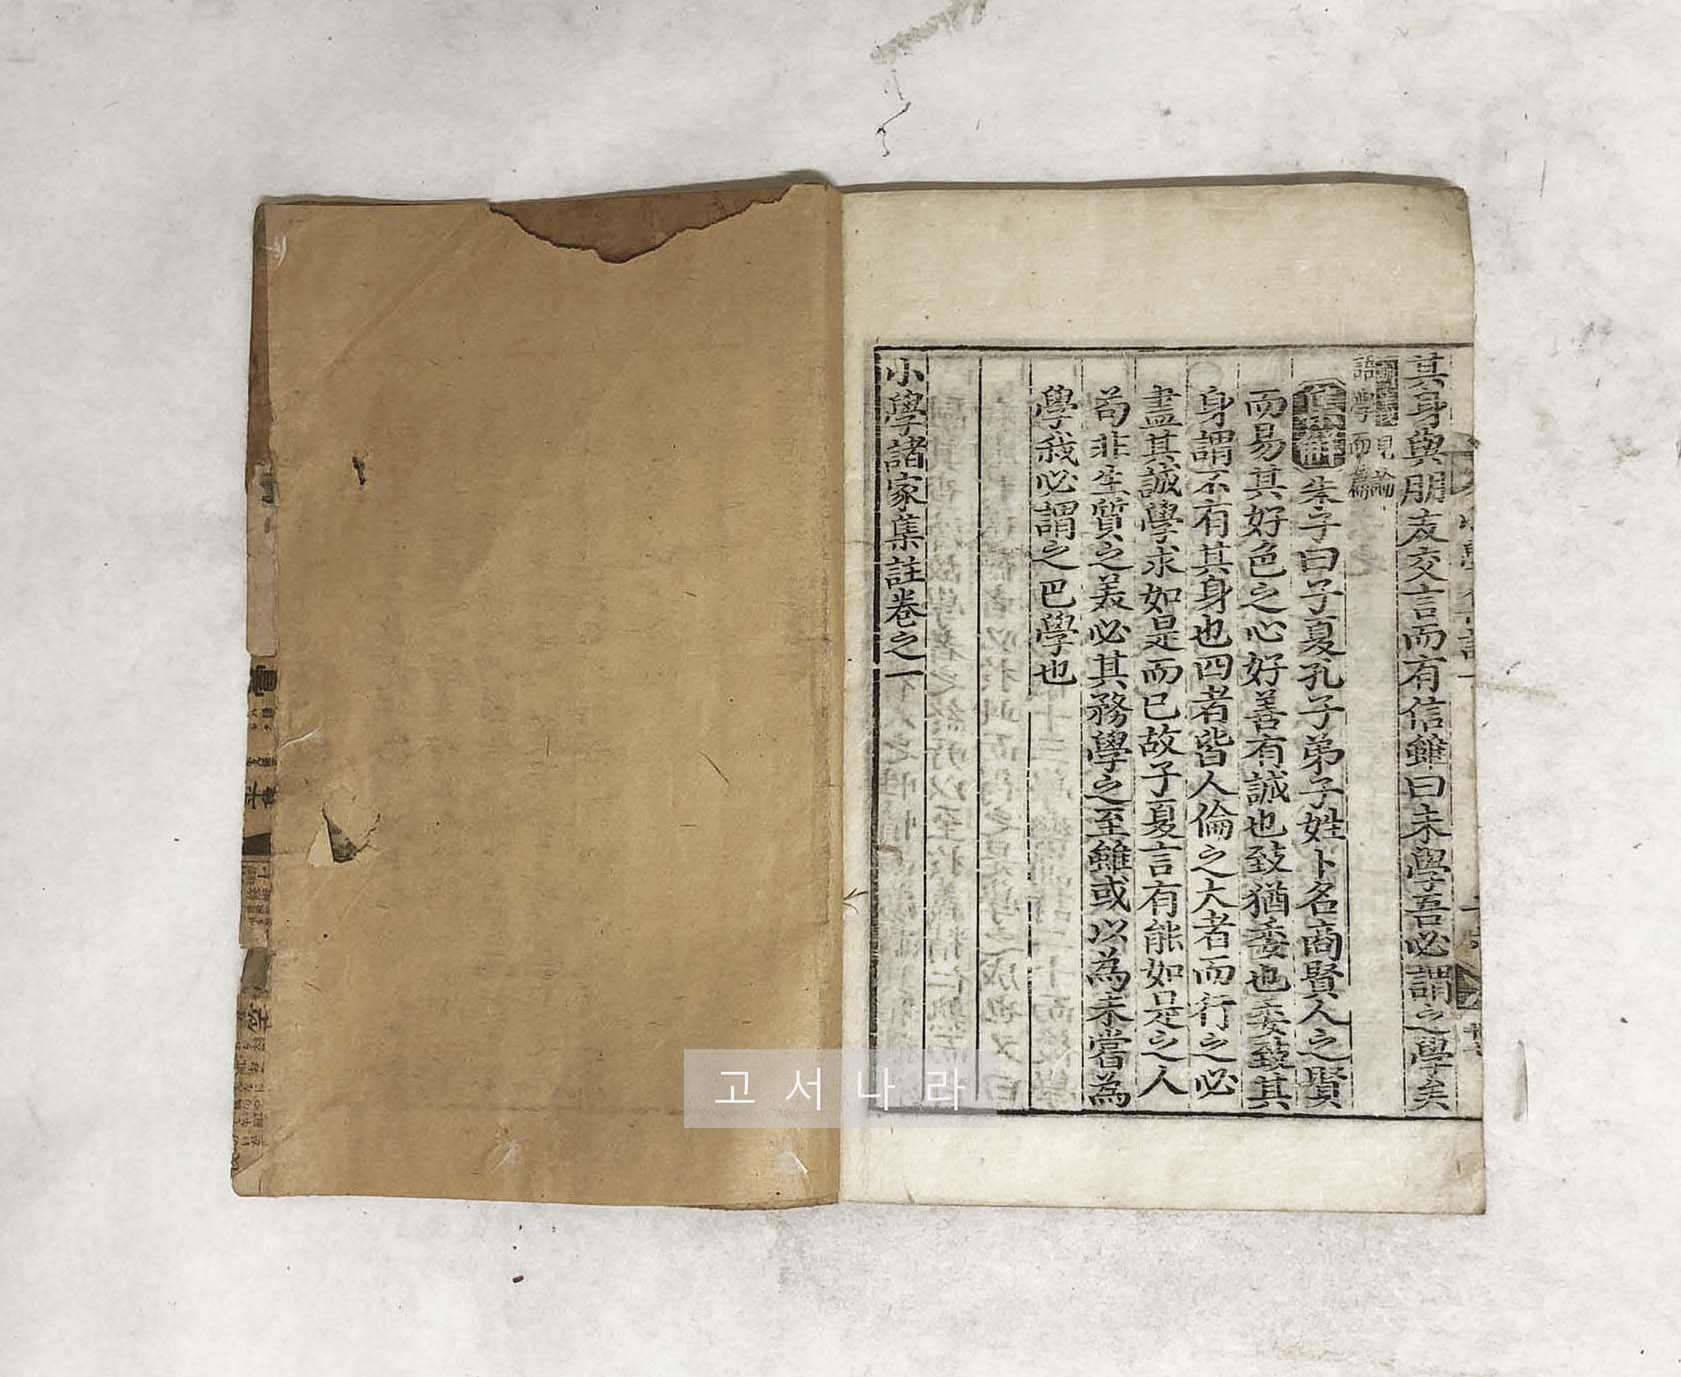 其身與朋友交言而有信雖曰未學吾必謂之學矣
見論
語學而篇
集解 朱子曰子夏孔子弟子姓卜名商賢人之賢
而易其好色之心好善有誠也致猶委也委致其
身謂不有其身也四者皆人倫之大者而行之必
盡其誠學求如是而已故子夏言有能如是之人
苟非生質之美必其務學之至雖或以為未嘗為
學我必謂之已學也
小學諸家集註卷之一
고서나라